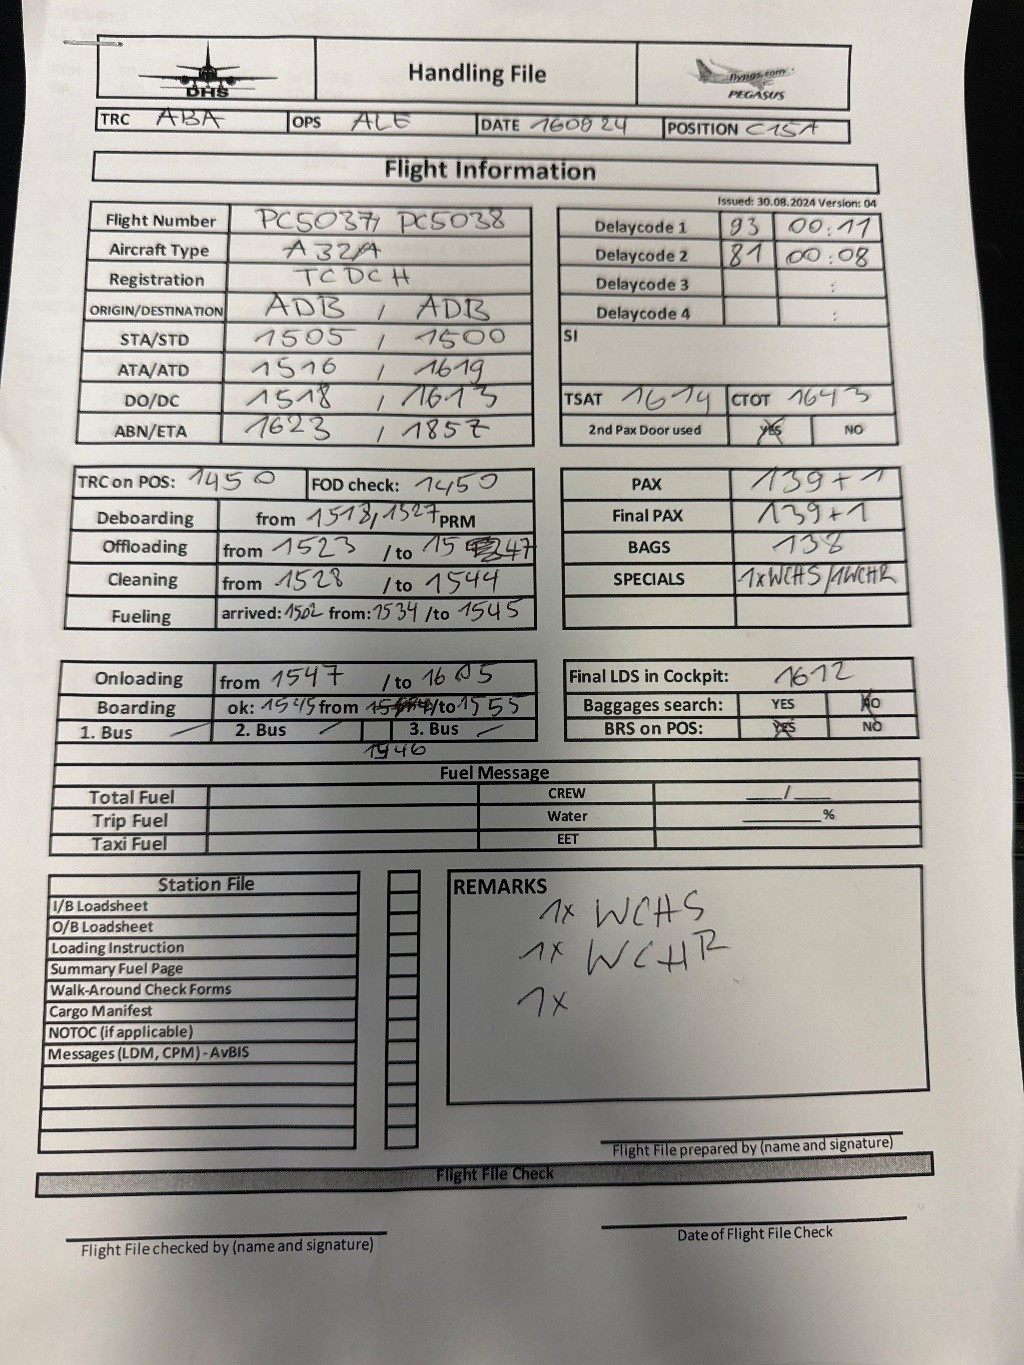 DHS
Handling File
flypgs.com
PEGASUS
TRC ABA OPS ALE DATE 160924 POSITION C15A
Flight Information
Issued: 30.08.2024 Version: 04
Flight Number PC5037, PC5038
Aircraft Type A32A
Registration TCDCH
ORIGIN/DESTINATION ADB , ADB
STA/STD 1505 , 1500
ATA/ATD 1516 , 1619
DO/DC 1518 , 1613
ABN/ETA 1623 , 1857
Delaycode 1 93 00:11
Delaycode 2 81 00:08
Delaycode 3 :
Delaycode 4 :
SI
TSAT 1614 CTOT 1643
2nd Pax Door used YES NO
TRC on POS: 1450 FOD check: 1450
Deboarding from 1518, 1527 PRM
Offloading from 1523 /to 1547
Cleaning from 1528 /to 1544
Fueling arrived: 1502 from: 1534 /to 1545
PAX 139+1
Final PAX 139+1
BAGS 138
SPECIALS 1xWCHS/1WCHR
Onloading from 1547 /to 1605
Boarding ok: 1545 from /to 1555
1. Bus 2. Bus 3. Bus
1546
Final LDS in Cockpit: 1612
Baggages search: YES NO
BRS on POS: YES NO
Fuel Message
Total Fuel CREW ___/___
Trip Fuel Water ________%
Taxi Fuel EET
Station File
I/B Loadsheet
O/B Loadsheet
Loading Instruction
Summary Fuel Page
Walk-Around Check Forms
Cargo Manifest
NOTOC (if applicable)
Messages (LDM, CPM) - AvBIS
REMARKS
1x WCHS
1x WCHR
1x
Flight File prepared by (name and signature)
Flight File Check
Flight File checked by (name and signature)
Date of Flight File Check